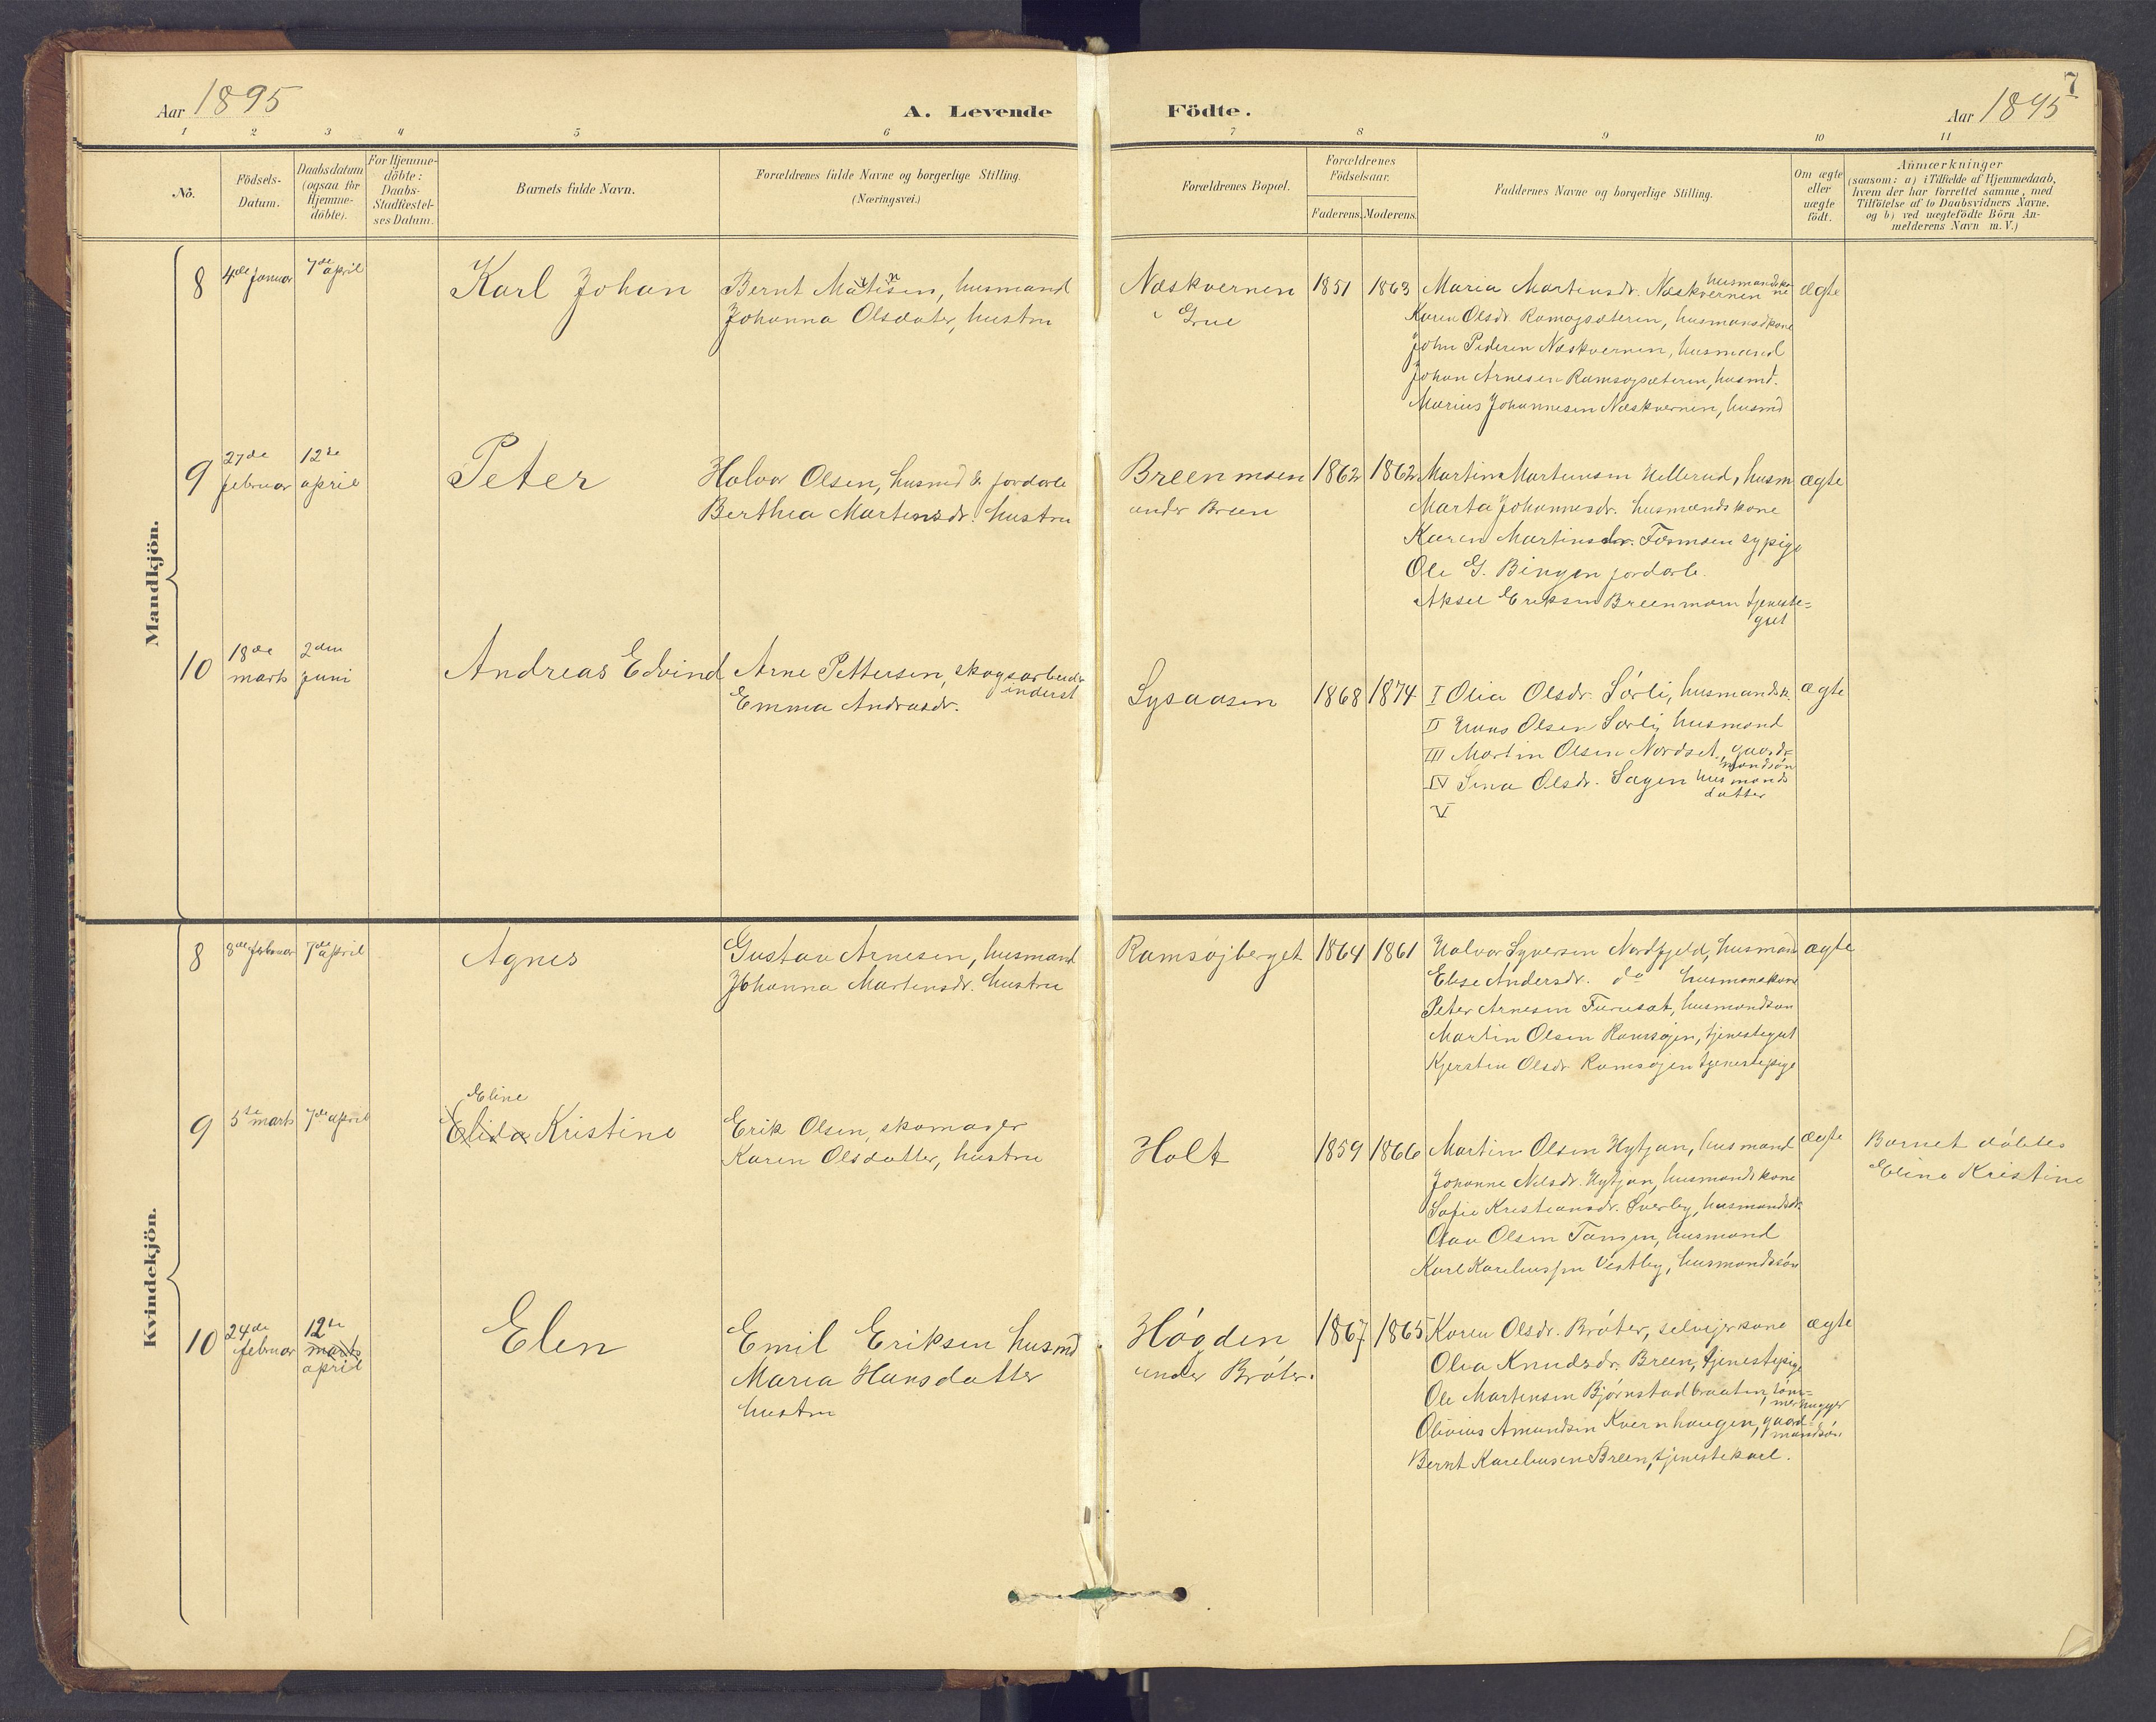 Aar 1895
A. Levende Födte.
7
Aar 1895
1 2 3 4 5 6 7 8 9 10 11
No.
Födsels-
Datum.
Daabsdatum
(ogsaa för
Hjemme-
döbte).
For Hjemme-
döbte:
Daabs-
Stadfæstel-
ses Datum.
Barnets fulde Navn.
Forældrenes fulde Navne og borgerlige Stilling.
(Næringsvei.)
Forældrenes Bopæl.
Forældrenes
Födselsaar.
Faderens. Moderens.
Faddernes Navne og borgerlige Stilling.
Om ægte
eller
uægte
födt.
Anmærkninger
(saasom: a) i Tilfælde af Hjemmedaab,
hvem der har forrettet samme, med
Tilföielse af to Daabsvidners Navne,
og b) ved uægtefödte Börn An-
melderens Navn m. V.)
Mandkjön.
8
4de januar
7de april
Karl Johan
Bernt husmand
Johanna Olsdater, hustru
Næskvernen
i Grue
1851
1863
Maria Martinsdr. Næskvernen husmandsko-
ne
Karen Olsdr. husmandskone
John Pedersen Næskvernen, husmand
Johan Arnesen husmd.
Marius Johannesen Næskvernen, husmd
ægte
9
27de
februar
12te
april
Peter
Halvor Olsen, husmd & jordarb
Berthea Martinsdr. hustru
Breenmoen
under Breen
1862
1862
Martin Martinsen Hellerud, husm
Marta Johannesdr. husmandskone
Karen Martinsdr. sypige
Ole G. Bingen jordarb.
Aksel Eriksen Breenmoen tjeneste-
gut
ægte
10
18de
marts
2den
juni
Andreas Edvind
Arne Pettersen, skogsarbeider
inderst
Emma Andreasdr.
Lysaasen
1868
1874
I Olia Olsdr. Sörli, husmandsk.
II Hans Olsen Sörli, husmand
III Martin Olsen Nordset, gaard-
mandsön
IV Lina Olsdr. Sagen husmands
datter
V
ægte
Kvindekjön.
8
3de februar
7de april
Agnes
Gustav Arnesen, husmand
Johanna Martinsdr. hustru
Ramsöjberget
1864
1861
Halvor Syversen Nordfjeld, husmand
Elise Andersdr. do husmandskone
Peter Arnesen Furuset, husmandsön
Martin Olsen Ramsöjen, tjenestegut
Kjersten Olsdr. Ramsöjen tjenestepige
ægte
9
5te marts
7de april
Eline
Elida Kristine
Erik Olsen, skomager
Karen Olsdatter, hustru
Holt
1859
1866
Martin Olsen Hytjan, husmand
Johanne Nilsdr. Hytjan, husmandskone
Sofie Kristiansdr. Sverby, husmandsdr.
Olav Olsen Tangen, husmand
Karl Kareliussen Vestby, husmandssön
ægte
Barnet döbtes
Eline Kristine
10
24de
februar
12te
marts
april
Elen
Emil Eriksen husmd
Maria Hansdatter
hustru
Högden
under Bråter.
1867
1865
Karen Olsdr. Bråter, selvejerkone
Olea Knudsdr. Breen, tjenestepige
Ole Martinsen Bjørnstadbraaten, töm-
merhugger
Olivius Amundsen Kvernhaugen, gaard-
mandsön
Bernt Kareliusen Breen, tjenestekarl.
ægte